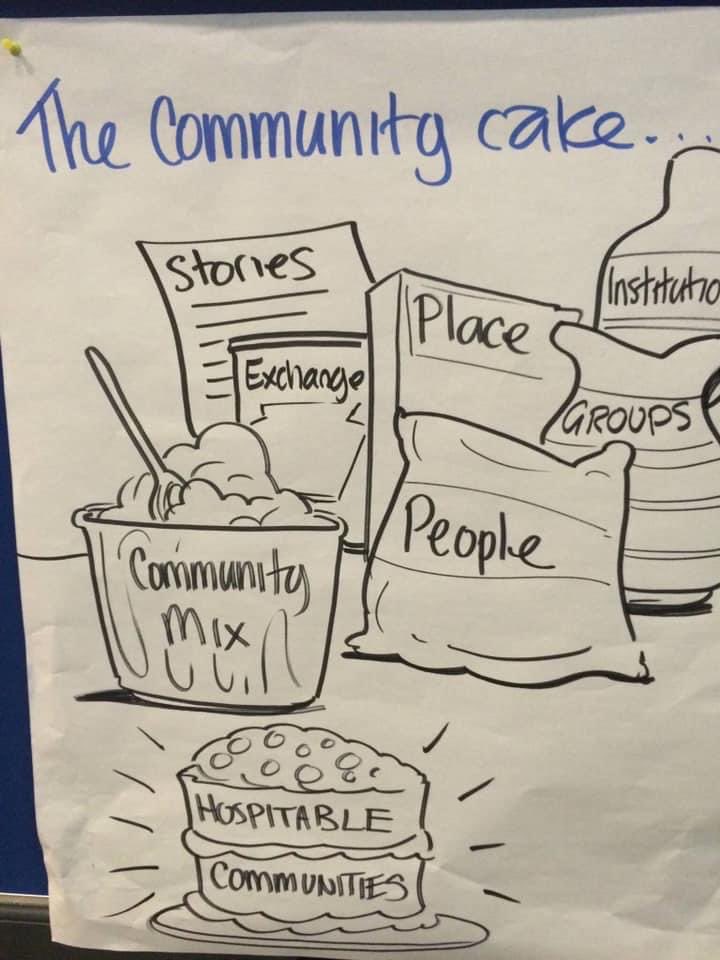 The Community cake...
Stories
Place
Institutio
Exchange
GROUPS
People
Community
Mix
HOSPITABLE
COMMUNITIES